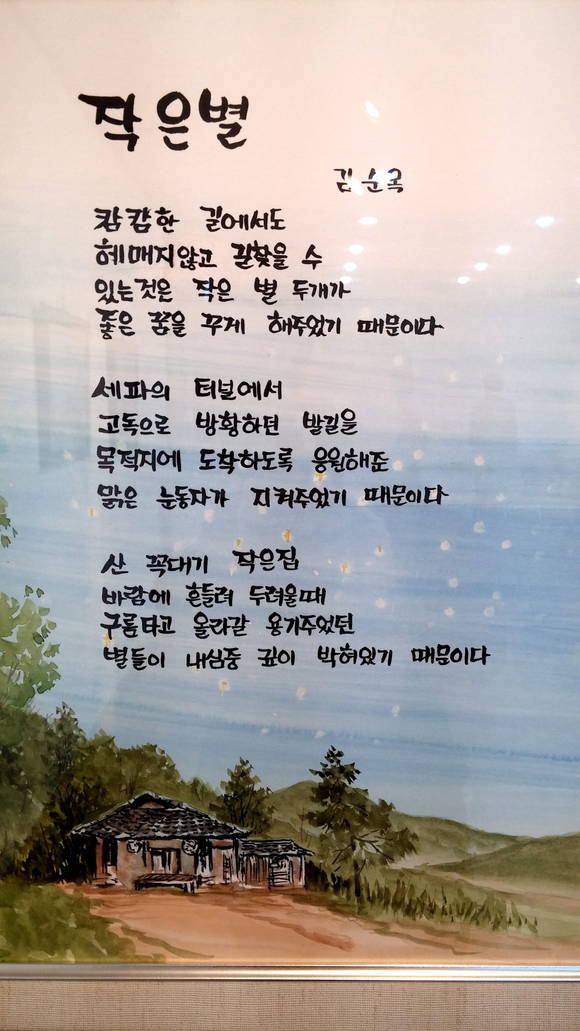 작은별
김순옥
캄캄한 길에서도
헤매지않고 길찾을 수
있는것은 작은 별 두개가
좋은 꿈을 꾸게 해주었기 때문이다
세파의 터널에서
고독으로 방황하던 발길을
목적지에 도착하도록 응원해준
맑은 눈동자가 지켜주었기 때문이다
산 꼭대기 작은집
바람에 흔들려 두려울때
구름타고 올라갈 용기주었던
별들이 내심중 깊이 박혀있기 때문이다